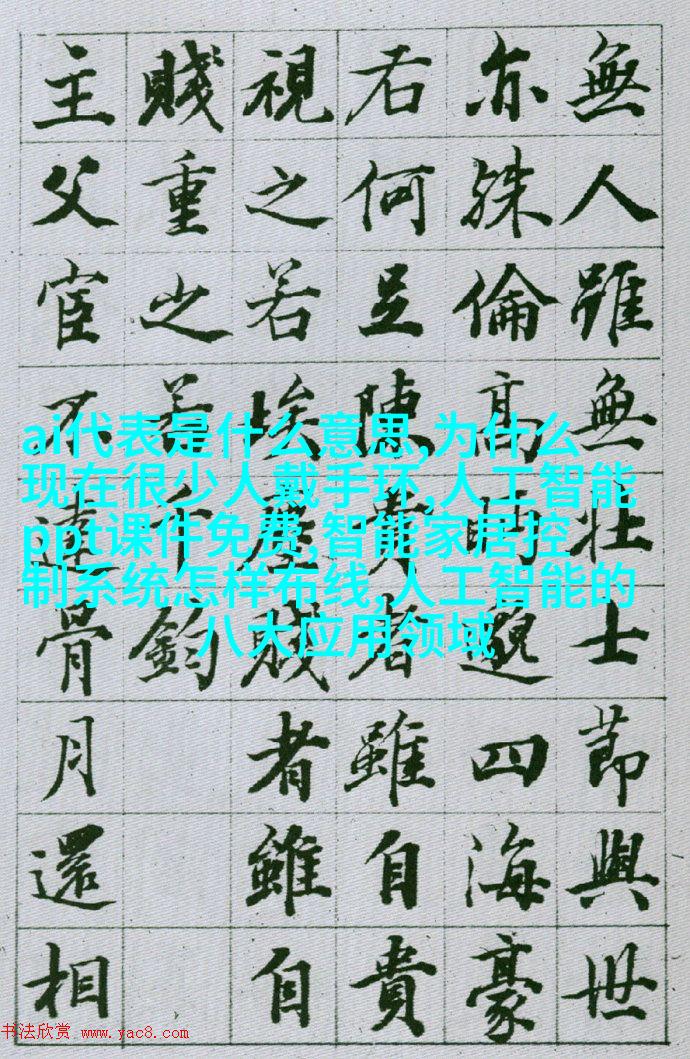 無人雖無壯士節與世
亦殊倫高眄邈四海豪
右何足陳貴者雖自貴
視之若埃塵賤者雖自
賤重之若千鈞
主父宦不達骨月還相
ai代表是什么意思,为什么
现在很少人戴手环,人工智能
ppt课件免费,智能家居控
制系统怎样布线,人工智能的
八大应用领域
书法欣赏 www.yac8.com